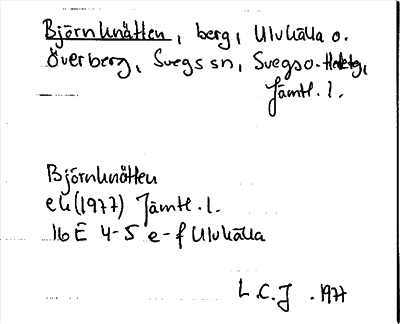 Björnknätten, berg, Ulvkälla o.
Överberg, Svegs sn, Svegs o.
Jämtl. l.
Björnknätten
ek (1977) Jämtl. l.
16 E 4-5 e-f Ulvkälla
L.C.J. 1977